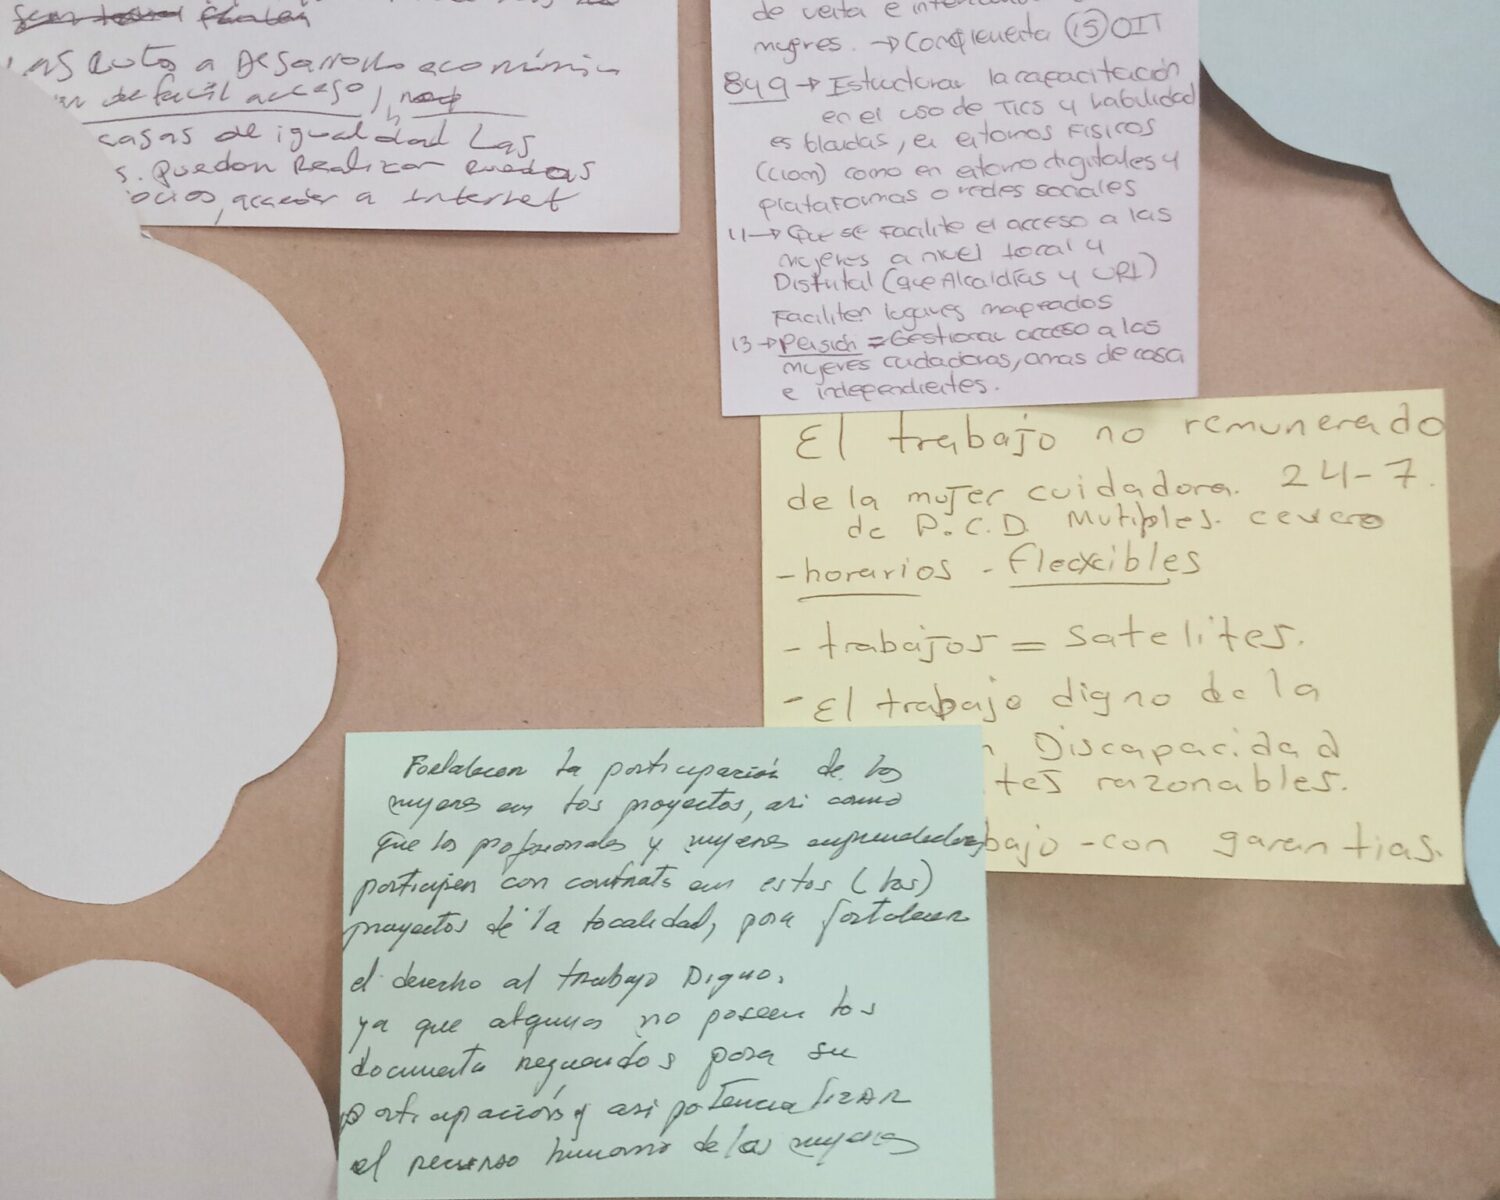 a Desarrollo económico
de facil acceso,
casas de igualdad Las
s. puedan Realizar
ocios, acceder a internet
de venta e
mujeres. → Complementa (15) OIT
8y9 → Estructurar la capacitación
en el uso de TICS y habilidad
es blandas, en entornos Físicos
(ciom) como en entorno digitales y
plataformas o redes sociales
11 → Que se Facilite el acceso a las
mujeres a nivel local y
Distrital (que Alcaldías y UPL)
Faciliten lugares mapeados
13 → Pensión = Gestionar acceso a las
mujeres cuidadoras, amas de casa
e independientes.
El trabajo no remunerado
de la mujer cuidadora. 24-7.
de P.C.D. Mutiples. cevero
- horarios - flecxcibles
- trabajos = satelites.
- El trabajo digno de la
n Discapacidad
tes razonables.
bajo - con garantias.
Fortalecer la participación de las
mujeres en los proyectos, asi como
que las profesionales y mujeres emprendedoras
participen con contrats en estos (los)
proyectos de la localidad, para fortalecer
el derecho al trabajo Digno.
ya que algunas no poseen los
documents requeridos para su
participación y asi potencializar
el recurso humano de las mujeres